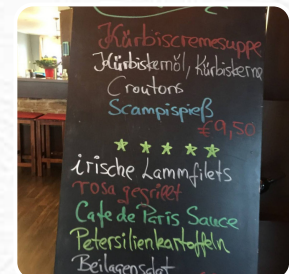 Kürbiscremesuppe
Kürbiskernöl, Kürbiskerne
Croutons
Scampispieß
€9,50
irische Lammfilets
rosa gegrillt
Cafe de Paris Sauce
Petersilienkartoffeln
Beilagensalat